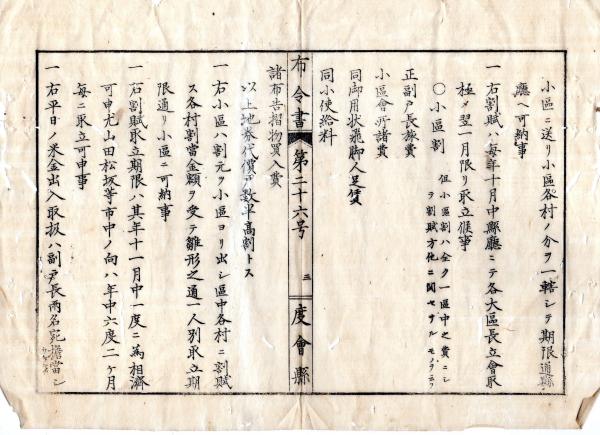 小區ニ送リ小區各村ノ分ヲ一轄シテ期限通縣
廳ヘ可納事
一右割賦ハ每年十月中縣廳ニテ各大區長立會取
極メ翌一月限リ取立候事
〇小區割
但小區割ハ全ク一區中之費ニシ
テ割賦方他ニ関セサルモノナリ
正副戸長旅費
小區會所諸費
同御用状飛脚人足賃
同小使給料
布令書 第二十六号 三 度會縣
諸布告摺物買入費
以上地券代價ヲ数半高割トス
一右小區ハ割元ヲ小區ヨリ出シ區中各村ニ割賦
ス各村割當金額ヲ受テ雛形之通一人別取立期
限通リ小區ニ可納事
一右割賦取立期限ハ其年十一月中一度ニ為相濟
可申尤山田松坂等市中ノ向ハ年中六度二ヶ月
每ニ取立可申事
一右平日ノ米金出入取扱ハ副戸長兩名宛擔當シ